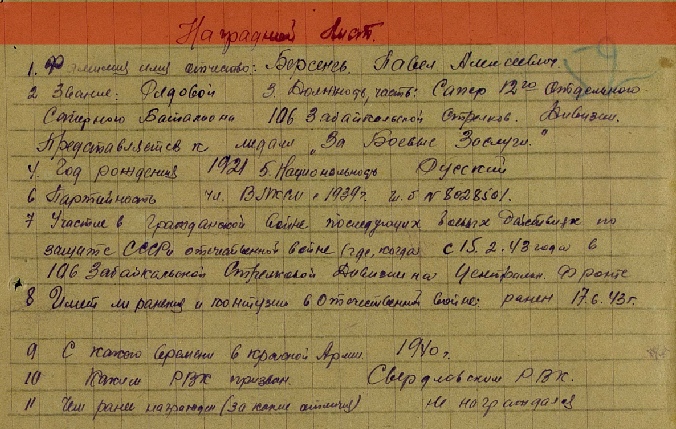 Наградной Лист.
1. Фамилия имя отчество: Борсенев Павел Алексеевич
2 Звание: Рядовой 3. Должность, часть: Сапер 12го Отдельного
Саперного Баталиона 106 Забайкальской Стрелков. Дивизии.
Представляется к медали „За Боевые Заслуги."
4. Год рождения 1921 5. Национальность Русский
6 Партийность чл. ВЛКСМ с 1939г. ч. б № 8028501.
7 Участие в гражданской войне последующих боевых действиях по
защите СССР и отечественной войне (где, когда) с 15.2.43 года в
106 Забайкальской Стрелковой Дивизии на Центральн. Фронте
8 Имеет ли ранения и контузии в Отечественной войне: ранен 17.6.43г.
9 С какого времени в Красной Армии 1940 г.
10 Каким РВК призван. Свердловским РВК.
11 Чем ранее награжден (за какие отличия) не награждался